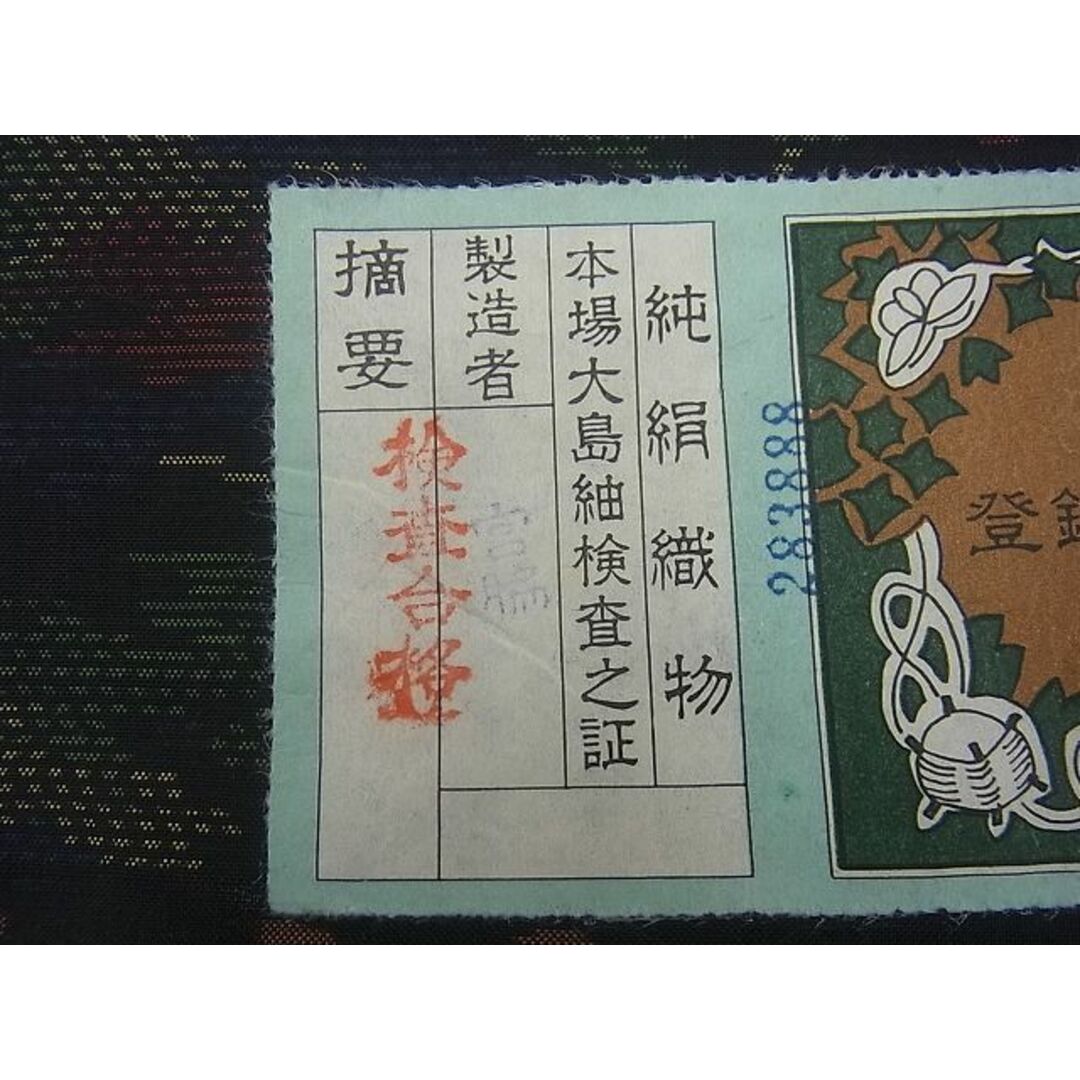 登
283888
純絹織物
本場大島紬検査之証
製造者
摘要
検査合格